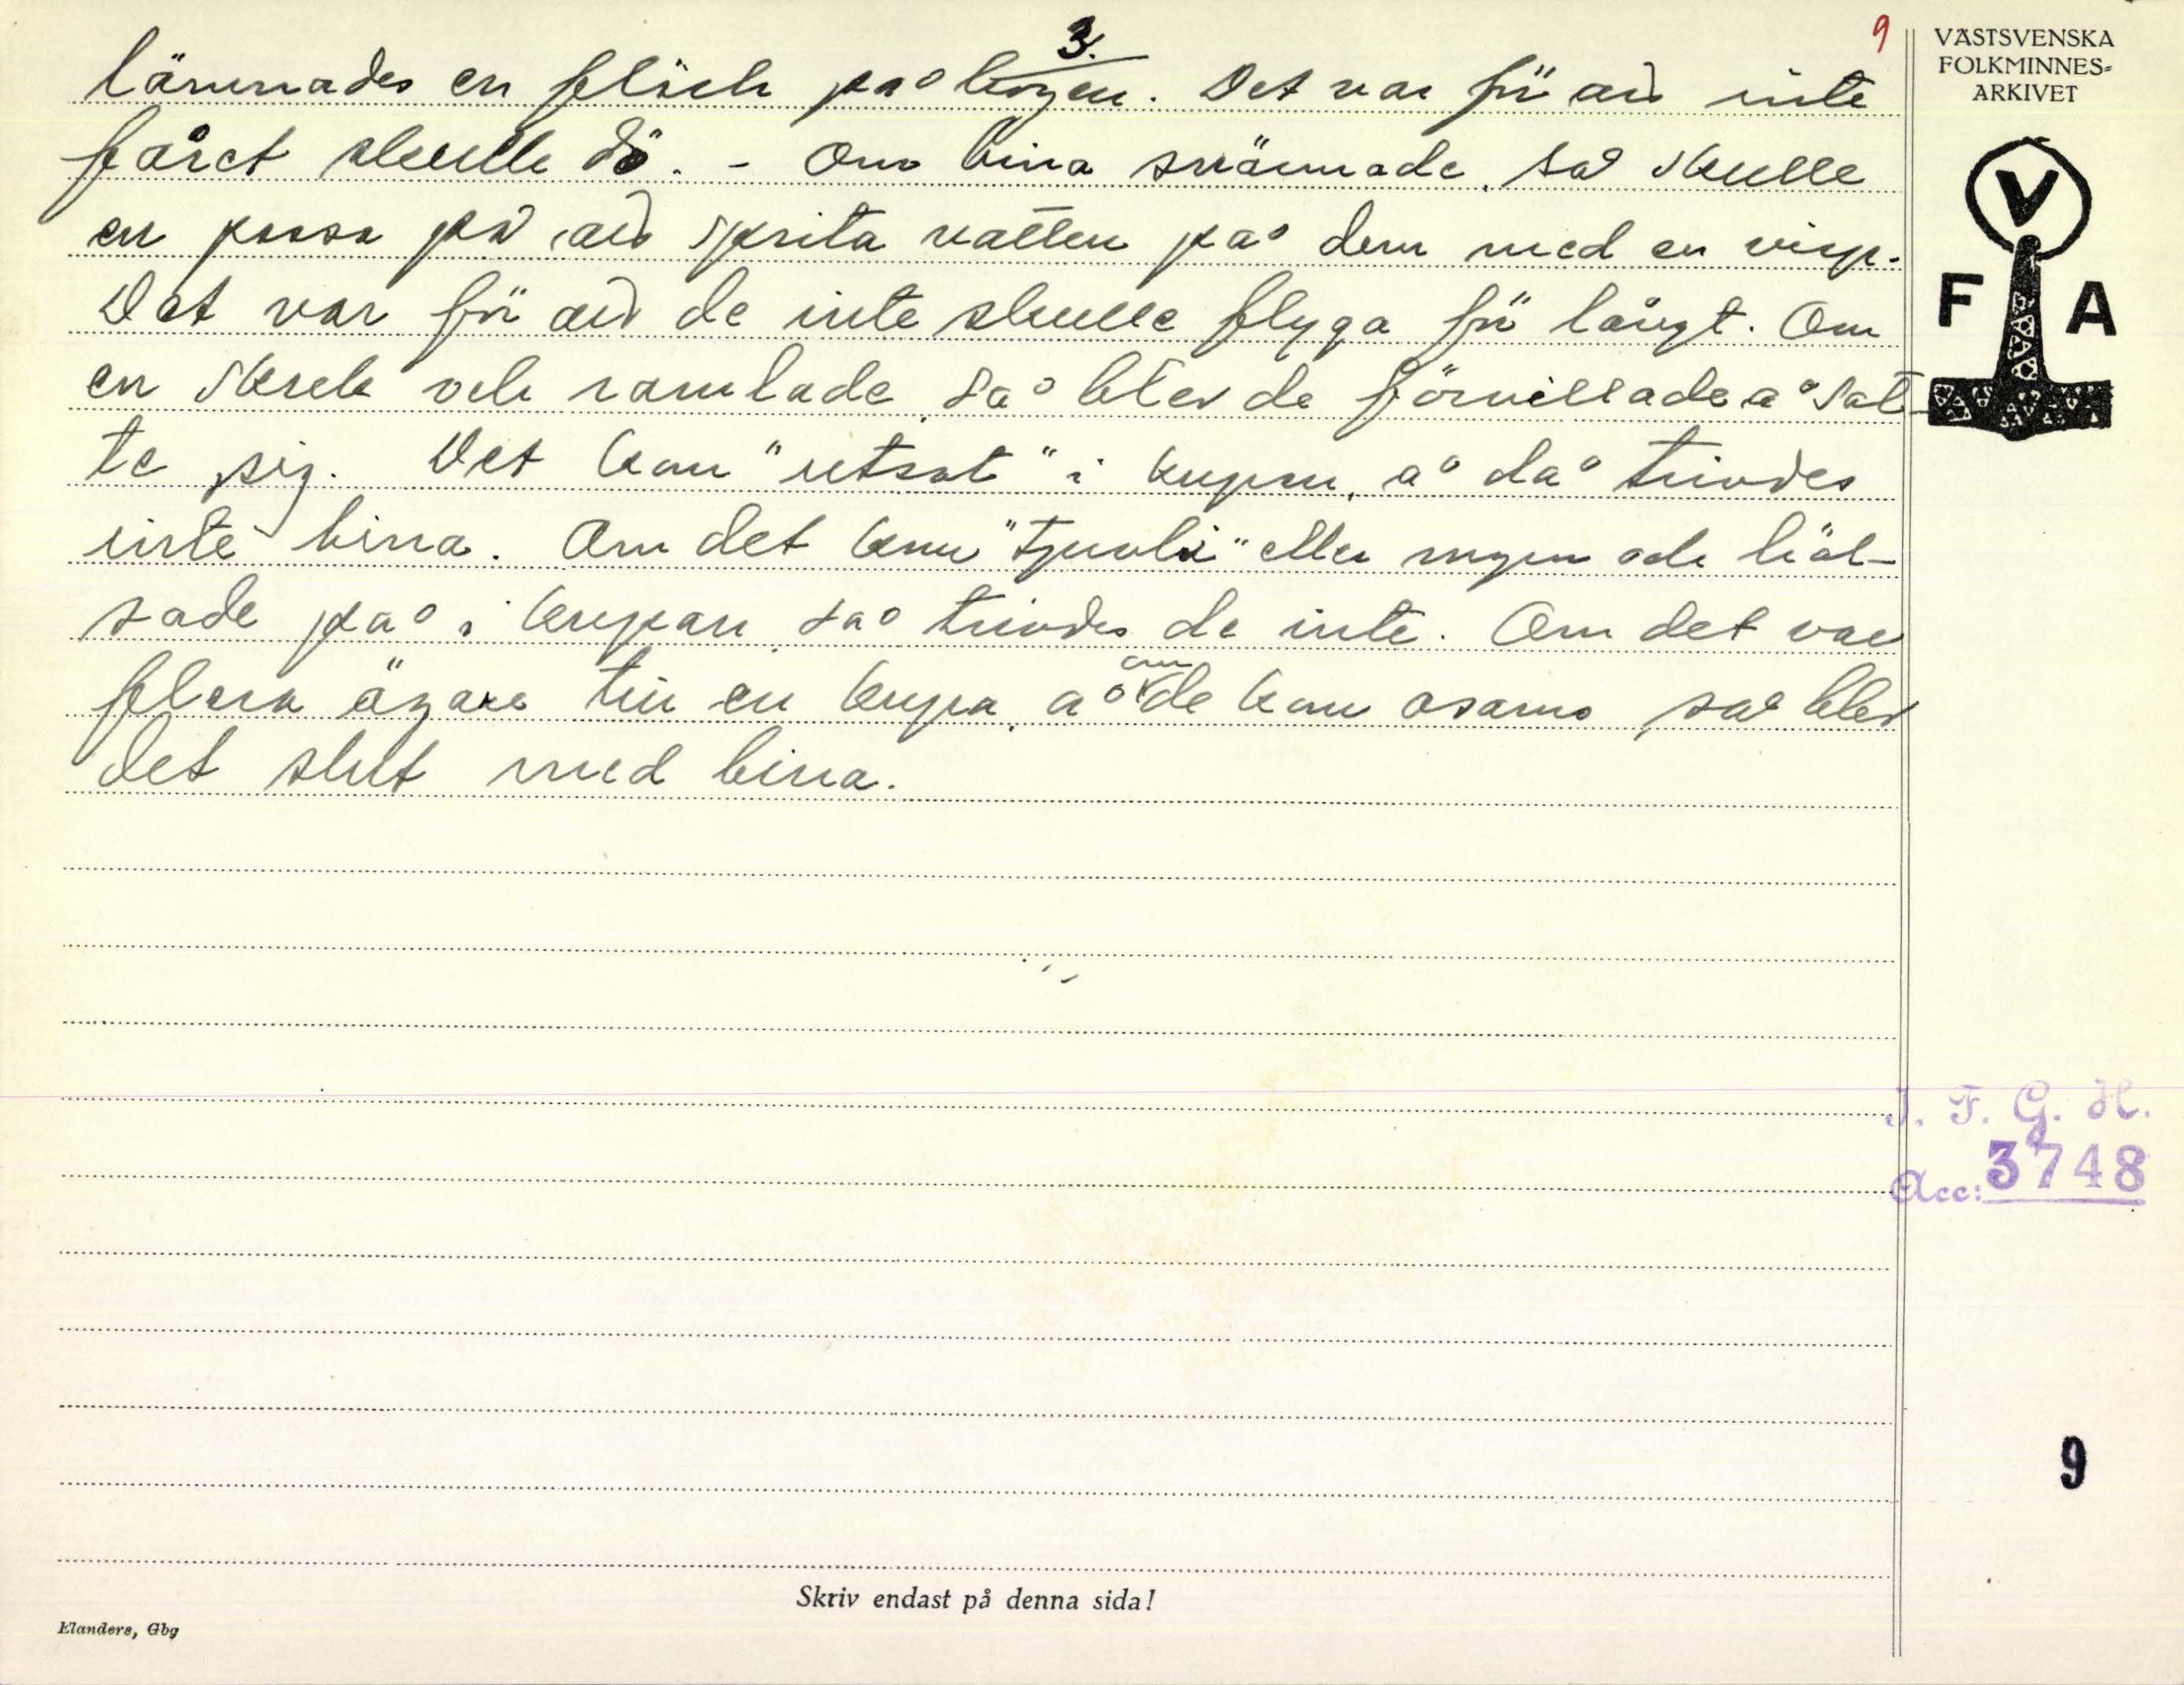 3.
9
lämnades en fläck på bogen. Det var för att inte
fåret skulle dö. - Om bina svärmade, så skulle
en passa på att sprita vatten på dem med en visp.
Det var för att de inte skulle flyga för långt. Om
en skrek och ramlade, så blev de förvillade å sat-
te sig. Det kom "utsot" i kupan, å då trivdes
inte bina. Om det kom "tjuvbi" eller myror och häl-
sade på i kupan, så trivdes de inte. Om det var
flera ägare till en kupa, å om de kom osams, så blev
det slut med bina.
VÄSTSVENSKA
FOLKMINNES-
ARKIVET
V
F A
I. F. G. H.
Acc: 3748
9
Skriv endast på denna sida!
Elanders, Gbg